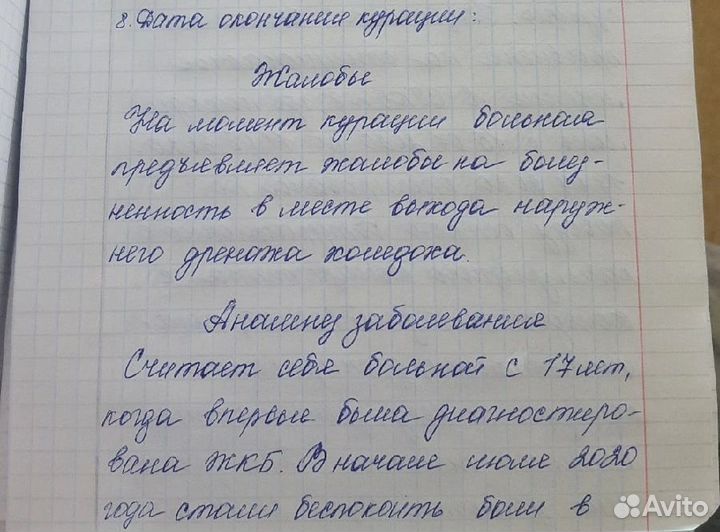 8. Дата окончания курации:
Жалобы
На момент курации больная
предъявляет жалобы на болез-
ненность в месте выхода наруж-
него дренажа холедоха.
Анамнез заболевания
Считает себя больной с 17 лет,
когда впервые была диагностиро-
вана ЖКБ. В начале июле 2020
года стали беспокоить боли в
Avito